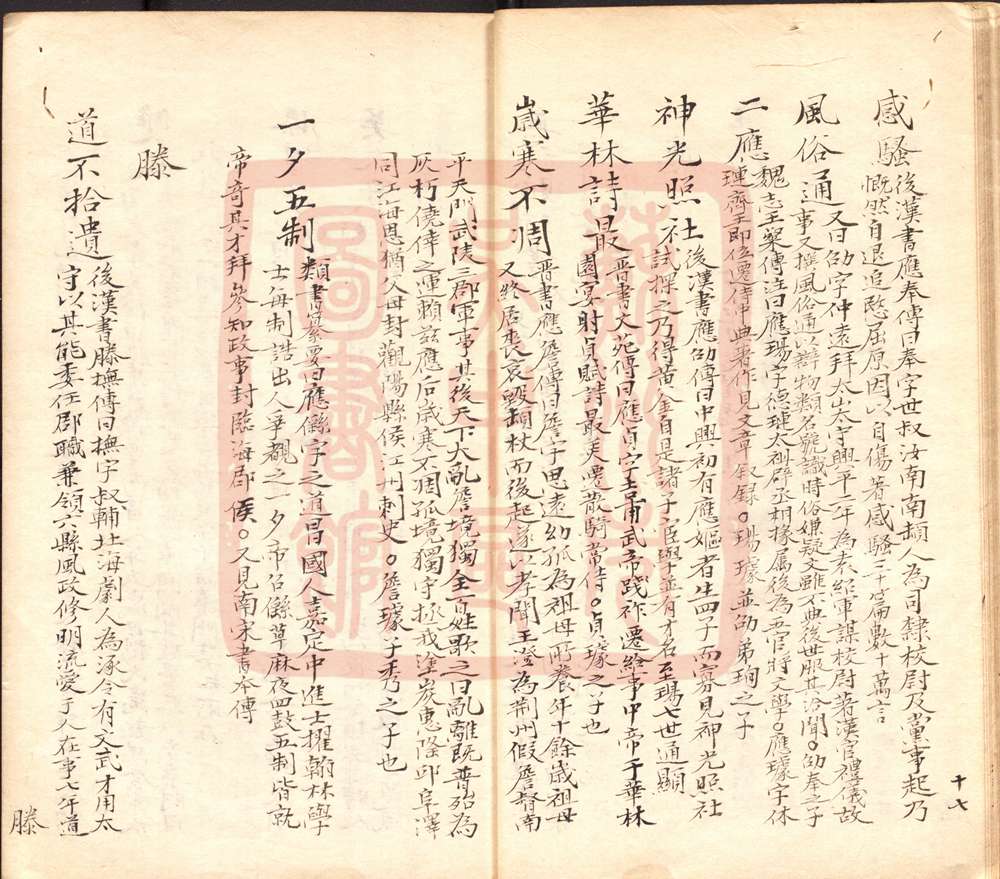 十七
感騷後漢書應奉傳曰奉字世叔汝南南頓人為司隸校尉及黨事起乃
慨然自退追愍屈原因以自傷著感騷三十篇數十萬言
風俗通又曰劭字仲遠拜太山太守興平二年為袁紹軍謀校尉著漢官禮儀故
事又撰風俗通以辯物類名號識時俗嫌疑文雖不典後世服其洽聞○劭奉之子
二應魏志王粲傳注曰應瑒字德璉太祖辟丞相掾属後為五官將文學○應璩字休
璉齊王即位遷侍中典著作見文章敘録○瑒璩並劭弟珣之子
神光照社後漢書應劭傳曰中興初有應嫗者生四子而寡見神光照社
試探之乃得黄金自是諸子宦學並有才名至瑒七世通顯
華林詩最晋書文苑傳曰應貞字吉甫武帝踐祚遷給事中帝于華林
園宴射貞賦詩最美遷散騎常侍○貞璩之子也
歳寒不凋晋書應詹傳曰詹字思遠幼孤為祖母所養年十餘歳祖母
又終居喪哀毀頓杖而後起遂以孝聞王澄為荆州假詹督南
平天門武陵三郡軍事其後天下大亂詹境獨全百姓歌之曰亂離既普殆為
灰朽僥倖之運賴兹應后歳寒不凋孤境獨守拯我塗炭惠隆邱阜澤
同江海恩猶父母封觀陽縣侯江州刺史○詹璩子秀之子也
一夕五制類書纂要曰應𦈅字之道昌國人嘉定中進士擢翰林學
士每制誥出人爭觀之一夕帝召𦈅草麻夜四鼓五制皆就
帝奇其才拜參知政事封臨海郡侯○又見南宋書本傳
滕
道不拾遺後漢書滕撫傳曰撫字叔輔北海劇人為涿令有文武才用太
守以其能委任郡職兼領六縣風政修明流愛于人在事七年道
滕